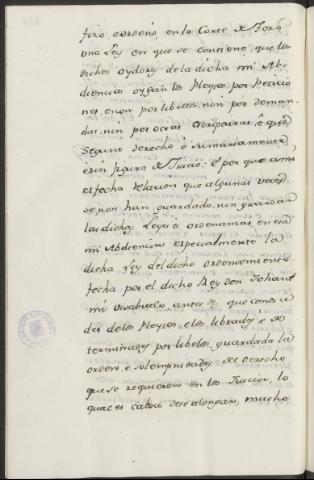 fizo, e ordenó en la Corte de Toro
una Ley en que se contiene, que los
dichos oydores de la dicha mi Ab-
diencia oygan los Pleytos por Peticio
nes, e non por libelos, nin por deman-
das, nin por otras Escripturas, é que
segunt derecho é sumariamente
é sin figura de Juicio: é por que a mi
es fecha relacion que algunas veces
se non han guardado, nin guardan
las dichas Leyes é ordenanzas, en esa
mi Abdiencia especialmente la
dicha Ley del dicho ordenamiento
fecha por el dicho Rey Don Johan
mi visabuelo antes que conosce
des de los Pleytos, e los librades e de
terminades por libelos, guardada la
orden, é solempnidades del derecho
que se requieren en los Juicios, lo
qual es cabsa de se alongar, mucho